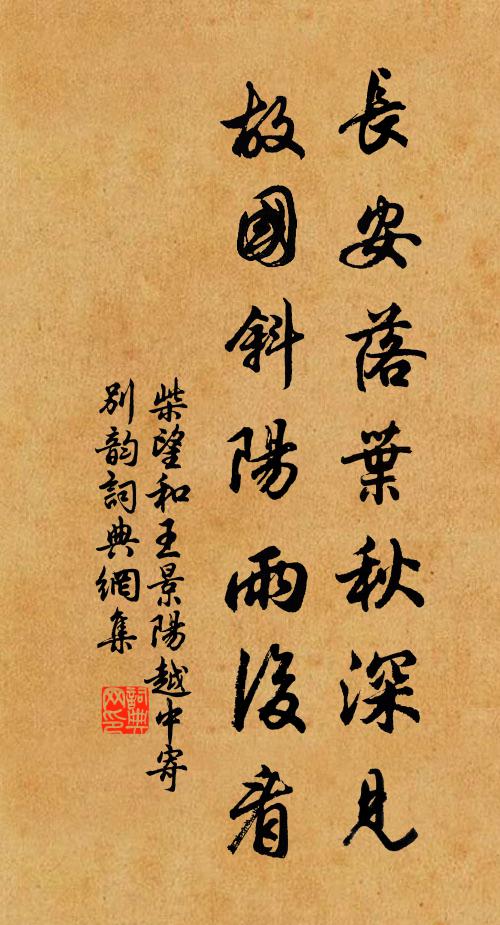 長安落葉秋深見
故國斜陽雨後看
柴望和王景陽越中寄
別韵詞典網集
詞典
网印